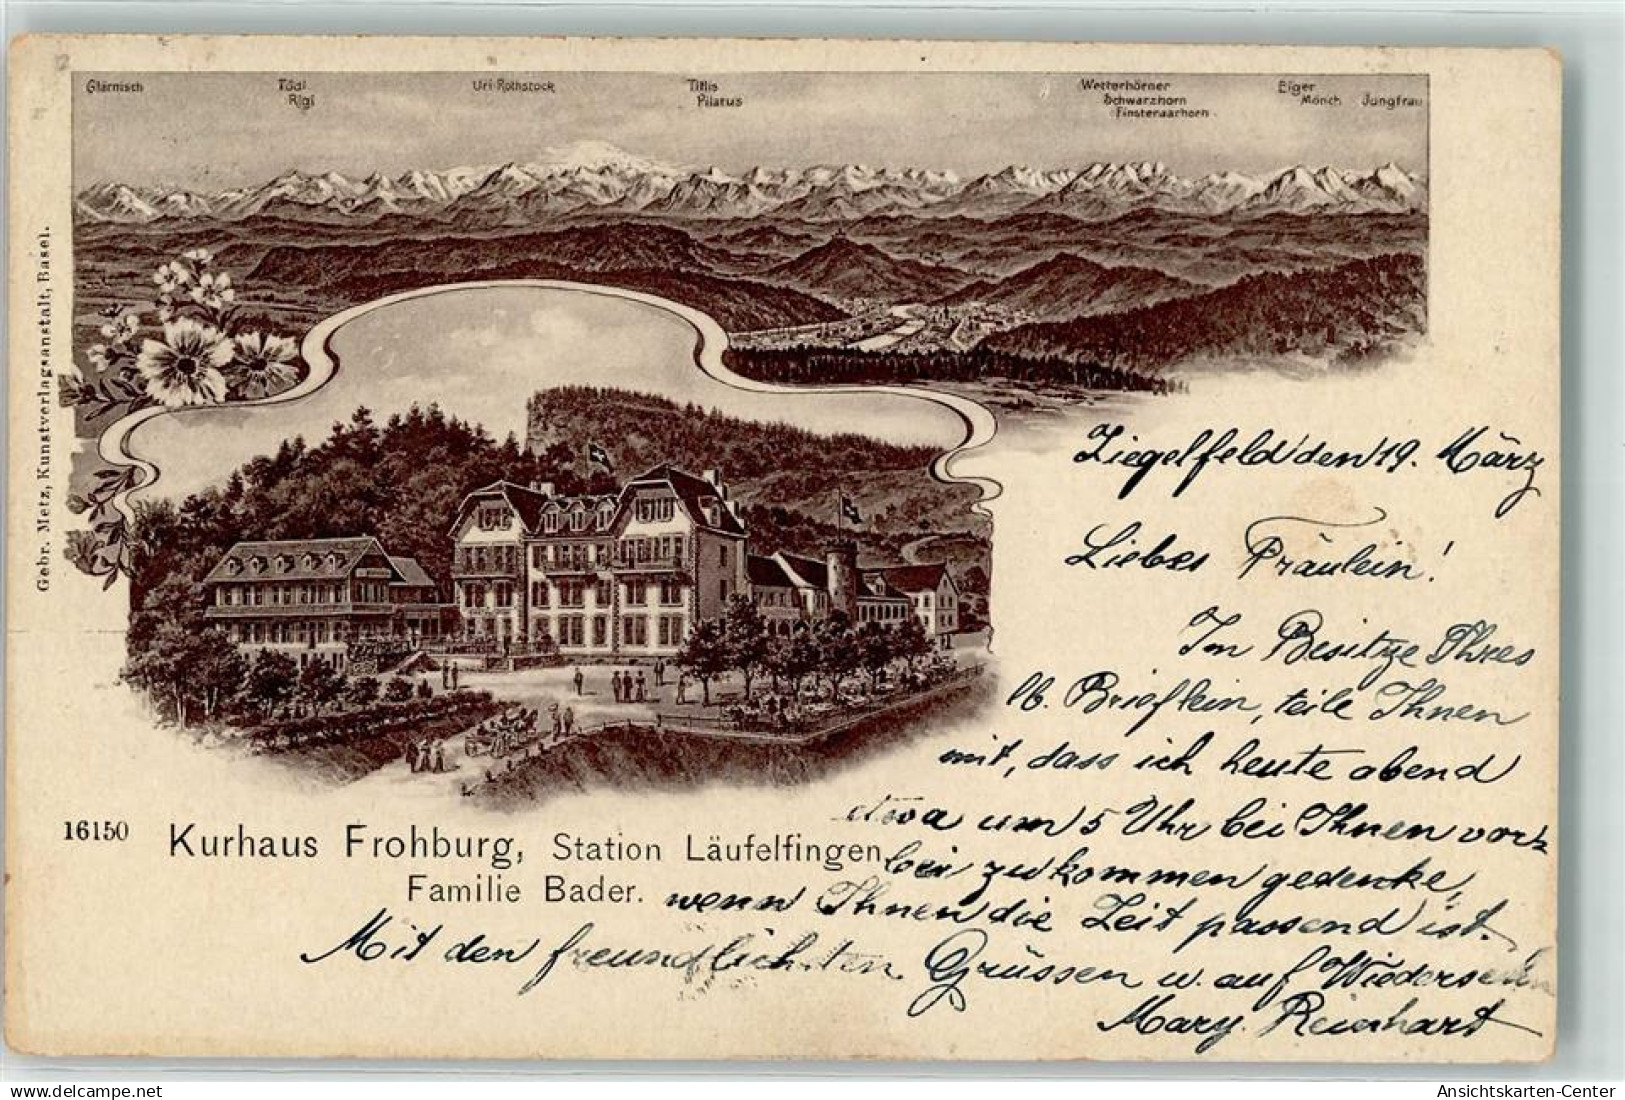 Glärnisch
Tödi
Rigi
Uri-Rothstock
Titlis
Pilatus
Wetterhörner
Schwarzhorn
Finsteraarhorn
Eiger
Mönch
Jungfrau
Gebr. Metz, Kunstverlagsanstalt, Basel.
Ziegelfeld den 19. März
Liebes Fräulein!
Im Besitze Ihres
lb. Brieflein, teile Ihnen
mit, dass ich heute abend
etwa um 5 Uhr bei Ihnen vor-
bei zu kommen gedenke,
wenn Ihnen die Zeit passend ist.
Mit den freundlichsten Grüssen u. auf Wiedersehn
Mary Reinhart
16150
Kurhaus Frohburg, Station Läufelfingen
Familie Bader.
Ansichtskarten-Center